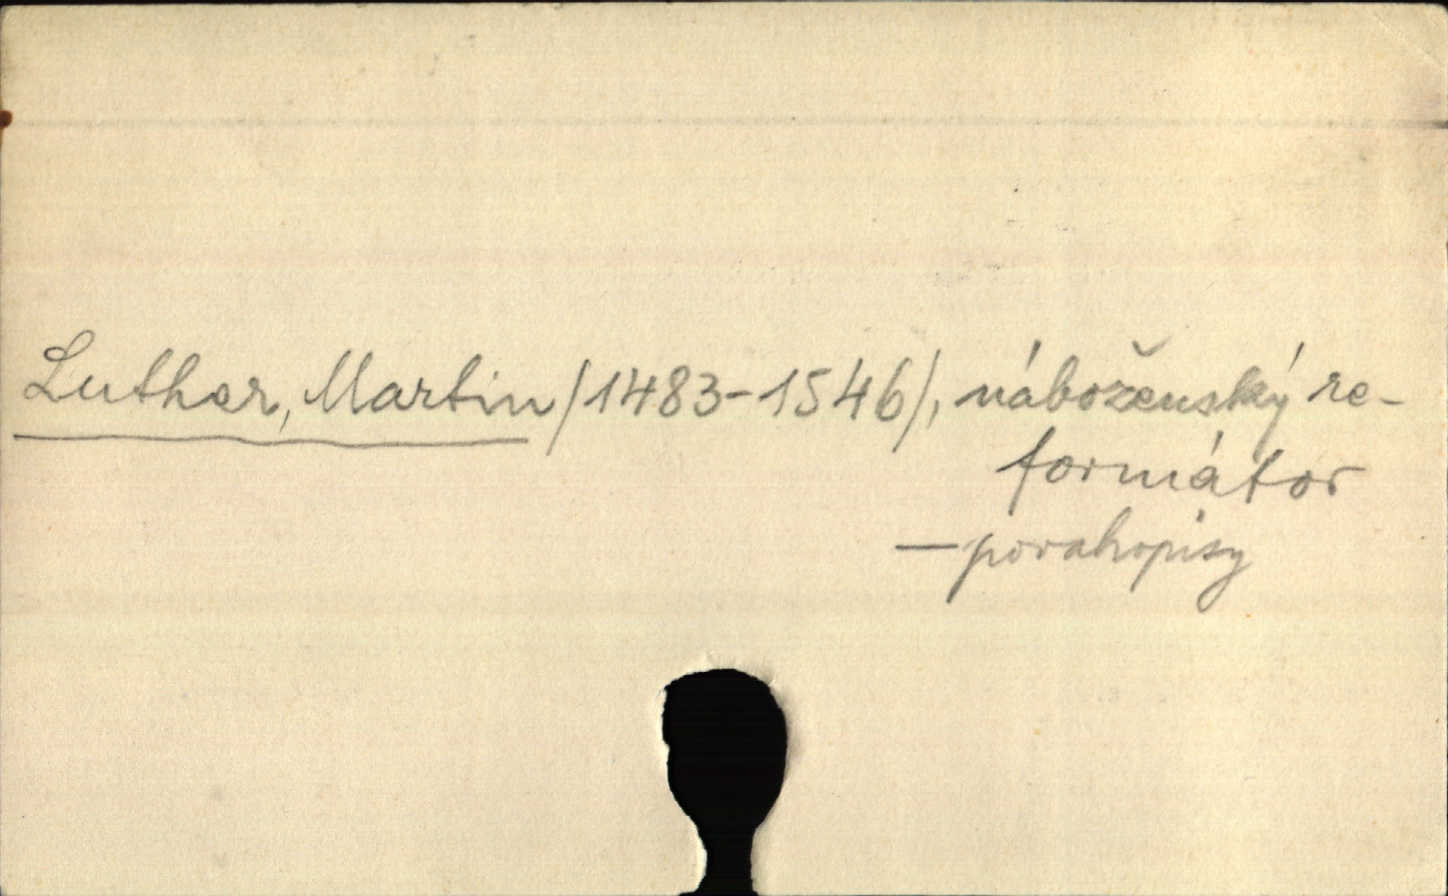 Luther, Martin /1483-1546/, náboženský re-
formátor
— povahopisy